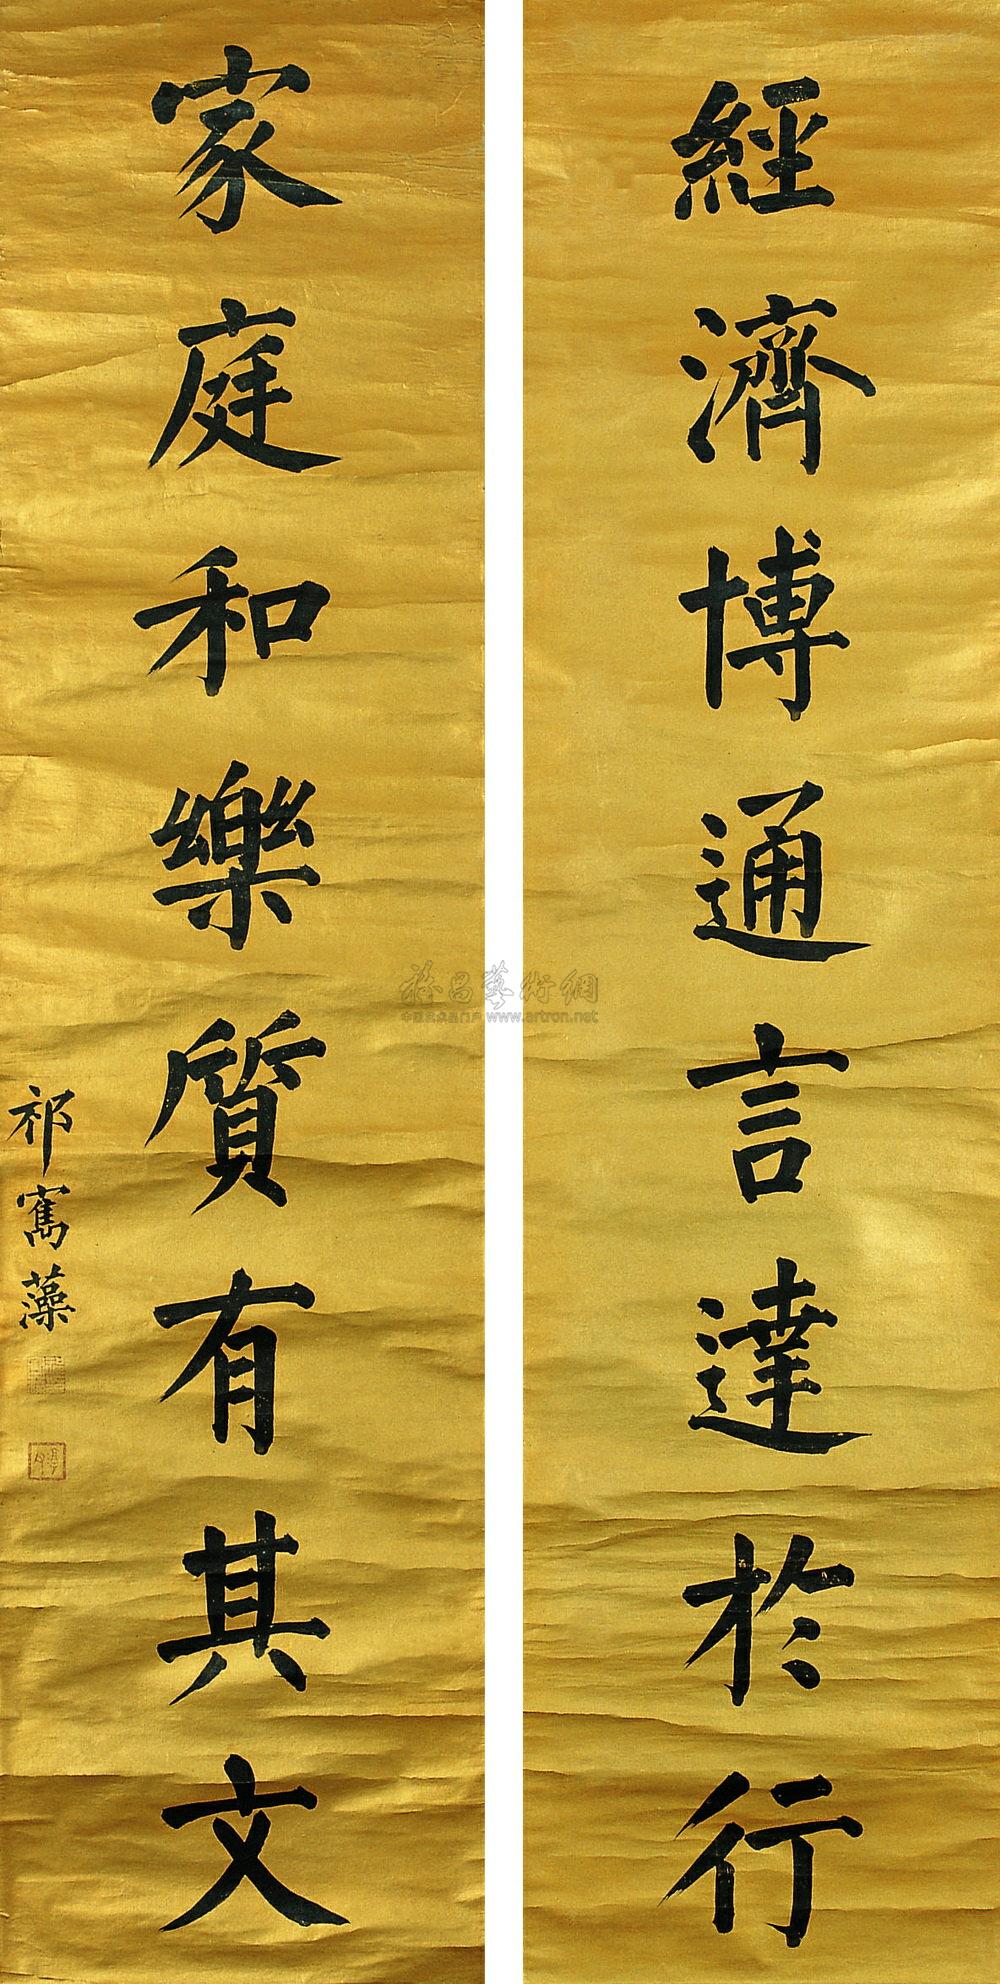 經濟博通言達於行
家庭和樂質有其文
祁寯藻
雅昌藝術網
www.artron.net